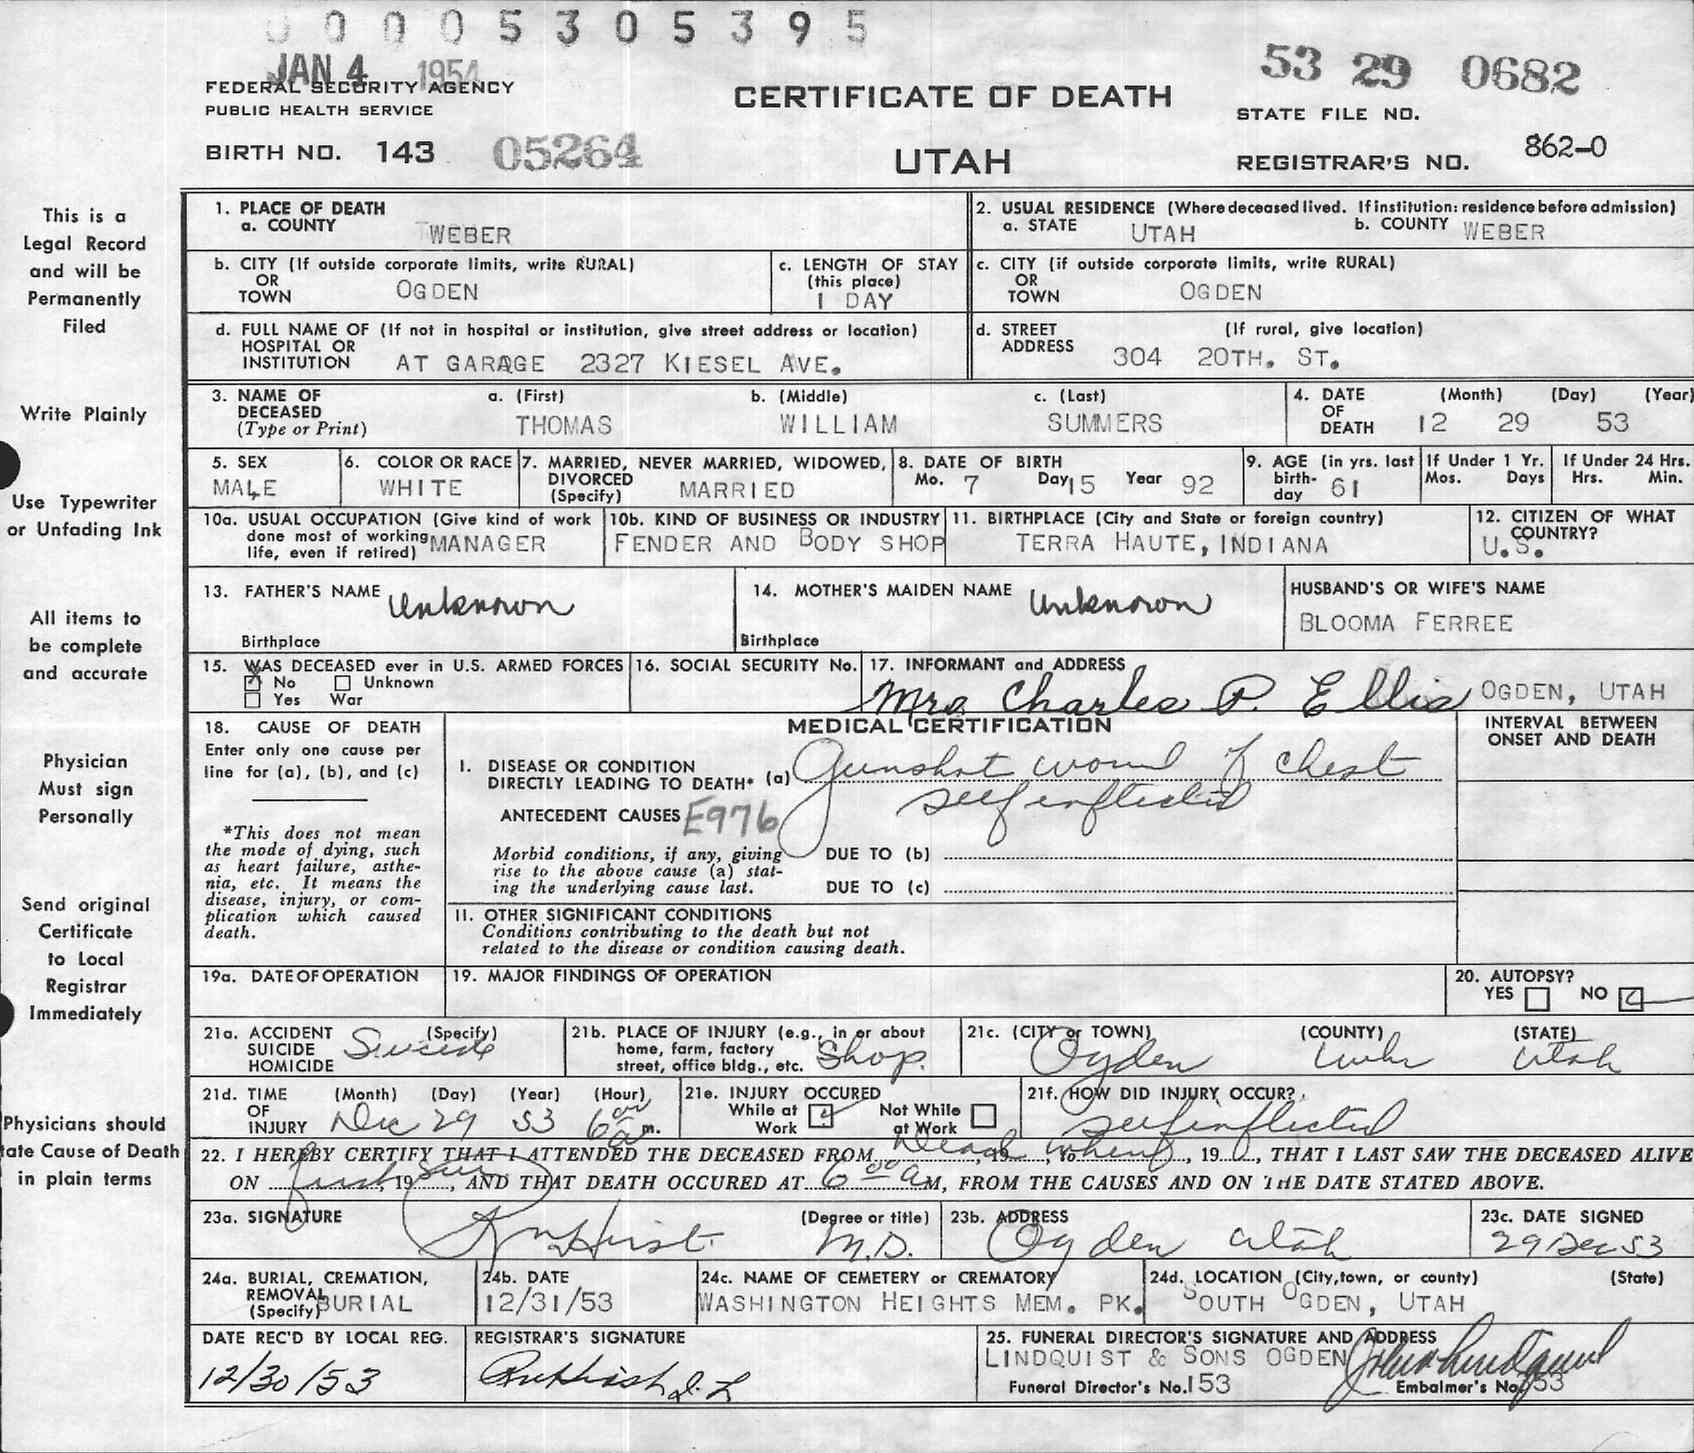 0 0 0 0 5 3 0 5 3 9 5
JAN 4 1954
53 29 0682
FEDERAL SECURITY AGENCY
PUBLIC HEALTH SERVICE
CERTIFICATE OF DEATH
STATE FILE NO.
BIRTH NO. 143 05264
UTAH
REGISTRAR'S NO. 862-0
This is a
Legal Record
and will be
Permanently
Filed
Write Plainly
Use Typewriter
or Unfading Ink
All items to
be complete
and accurate
Physician
Must sign
Personally
Send original
Certificate
to Local
Registrar
Immediately
Physicians should
tate Cause of Death
in plain terms
1. PLACE OF DEATH
a. COUNTY WEBER
2. USUAL RESIDENCE (Where deceased lived. If institution: residence before admission)
a. STATE UTAH b. COUNTY WEBER
b. CITY (If outside corporate limits, write RURAL)
OR
TOWN OGDEN
c. LENGTH OF STAY
(this place)
1 DAY
c. CITY (if outside corporate limits, write RURAL)
OR
TOWN OGDEN
d. FULL NAME OF (If not in hospital or institution, give street address or location)
HOSPITAL OR
INSTITUTION AT GARAGE 2327 KIESEL AVE.
d. STREET (If rural, give location)
ADDRESS 304 20TH. ST.
3. NAME OF a. (First) b. (Middle) c. (Last)
DECEASED
(Type or Print) THOMAS WILLIAM SUMMERS
4. DATE (Month) (Day) (Year)
OF
DEATH 12 29 53
5. SEX
MALE
6. COLOR OR RACE
WHITE
7. MARRIED, NEVER MARRIED, WIDOWED,
DIVORCED
(Specify) MARRIED
8. DATE OF BIRTH
Mo. 7 Day 15 Year 92
9. AGE (in yrs. last
birth-
day 61
If Under 1 Yr.
Mos. Days
If Under 24 Hrs.
Hrs. Min.
10a. USUAL OCCUPATION (Give kind of work
done most of working
life, even if retired) MANAGER
10b. KIND OF BUSINESS OR INDUSTRY
FENDER AND BODY SHOP
11. BIRTHPLACE (City and State or foreign country)
TERRA HAUTE, INDIANA
12. CITIZEN OF WHAT
COUNTRY?
U.S.
13. FATHER'S NAME Unknown
Birthplace
14. MOTHER'S MAIDEN NAME Unknown
Birthplace
HUSBAND'S OR WIFE'S NAME
BLOOMA FERREE
15. WAS DECEASED ever in U.S. ARMED FORCES
No Unknown
Yes War
16. SOCIAL SECURITY No.
17. INFORMANT and ADDRESS
Mrs Charles P. Ellis OGDEN, UTAH
18. CAUSE OF DEATH
Enter only one cause per
line for (a), (b), and (c)
*This does not mean
the mode of dying, such
as heart failure, asthe-
nia, etc. It means the
disease, injury, or com-
plication which caused
death.
MEDICAL CERTIFICATION
INTERVAL BETWEEN
ONSET AND DEATH
I. DISEASE OR CONDITION
DIRECTLY LEADING TO DEATH* (a) Gunshot wound of chest
self inflicted
ANTECEDENT CAUSES E976
Morbid conditions, if any, giving
rise to the above cause (a) stat-
ing the underlying cause last.
DUE TO (b)
DUE TO (c)
II. OTHER SIGNIFICANT CONDITIONS
Conditions contributing to the death but not
related to the disease or condition causing death.
19a. DATE OF OPERATION
19. MAJOR FINDINGS OF OPERATION
20. AUTOPSY?
YES NO
21a. ACCIDENT (Specify)
SUICIDE
HOMICIDE Suicide
21b. PLACE OF INJURY (e.g., in or about
home, farm, factory
street, office bldg., etc. Shop.
21c. (CITY or TOWN) (COUNTY) (STATE)
Ogden Utah
21d. TIME (Month) (Day) (Year) (Hour)
OF
INJURY Dec 29 53 6 00 a m.
21e. INJURY OCCURED
While at Work
Not While at Work
21f. HOW DID INJURY OCCUR?
self inflicted
22. I HEREBY CERTIFY THAT I ATTENDED THE DECEASED FROM Dead, 19, to when, 19, THAT I LAST SAW THE DECEASED ALIVE
ON first, 19 seen, AND THAT DEATH OCCURED AT 6 00 a M, FROM THE CAUSES AND ON THE DATE STATED ABOVE.
23a. SIGNATURE (Degree or title)
Hirst M.D.
23b. ADDRESS
Ogden Utah
23c. DATE SIGNED
29 Dec 53
24a. BURIAL, CREMATION,
REMOVAL
(Specify) BURIAL
24b. DATE
12/31/53
24c. NAME OF CEMETERY or CREMATORY
WASHINGTON HEIGHTS MEM. PK.
24d. LOCATION (City, town, or county) (State)
SOUTH OGDEN, UTAH
DATE REC'D BY LOCAL REG.
12/30/53
REGISTRAR'S SIGNATURE
25. FUNERAL DIRECTOR'S SIGNATURE AND ADDRESS
LINDQUIST & SONS OGDEN
Funeral Director's No. 153
Embalmer's No. 353